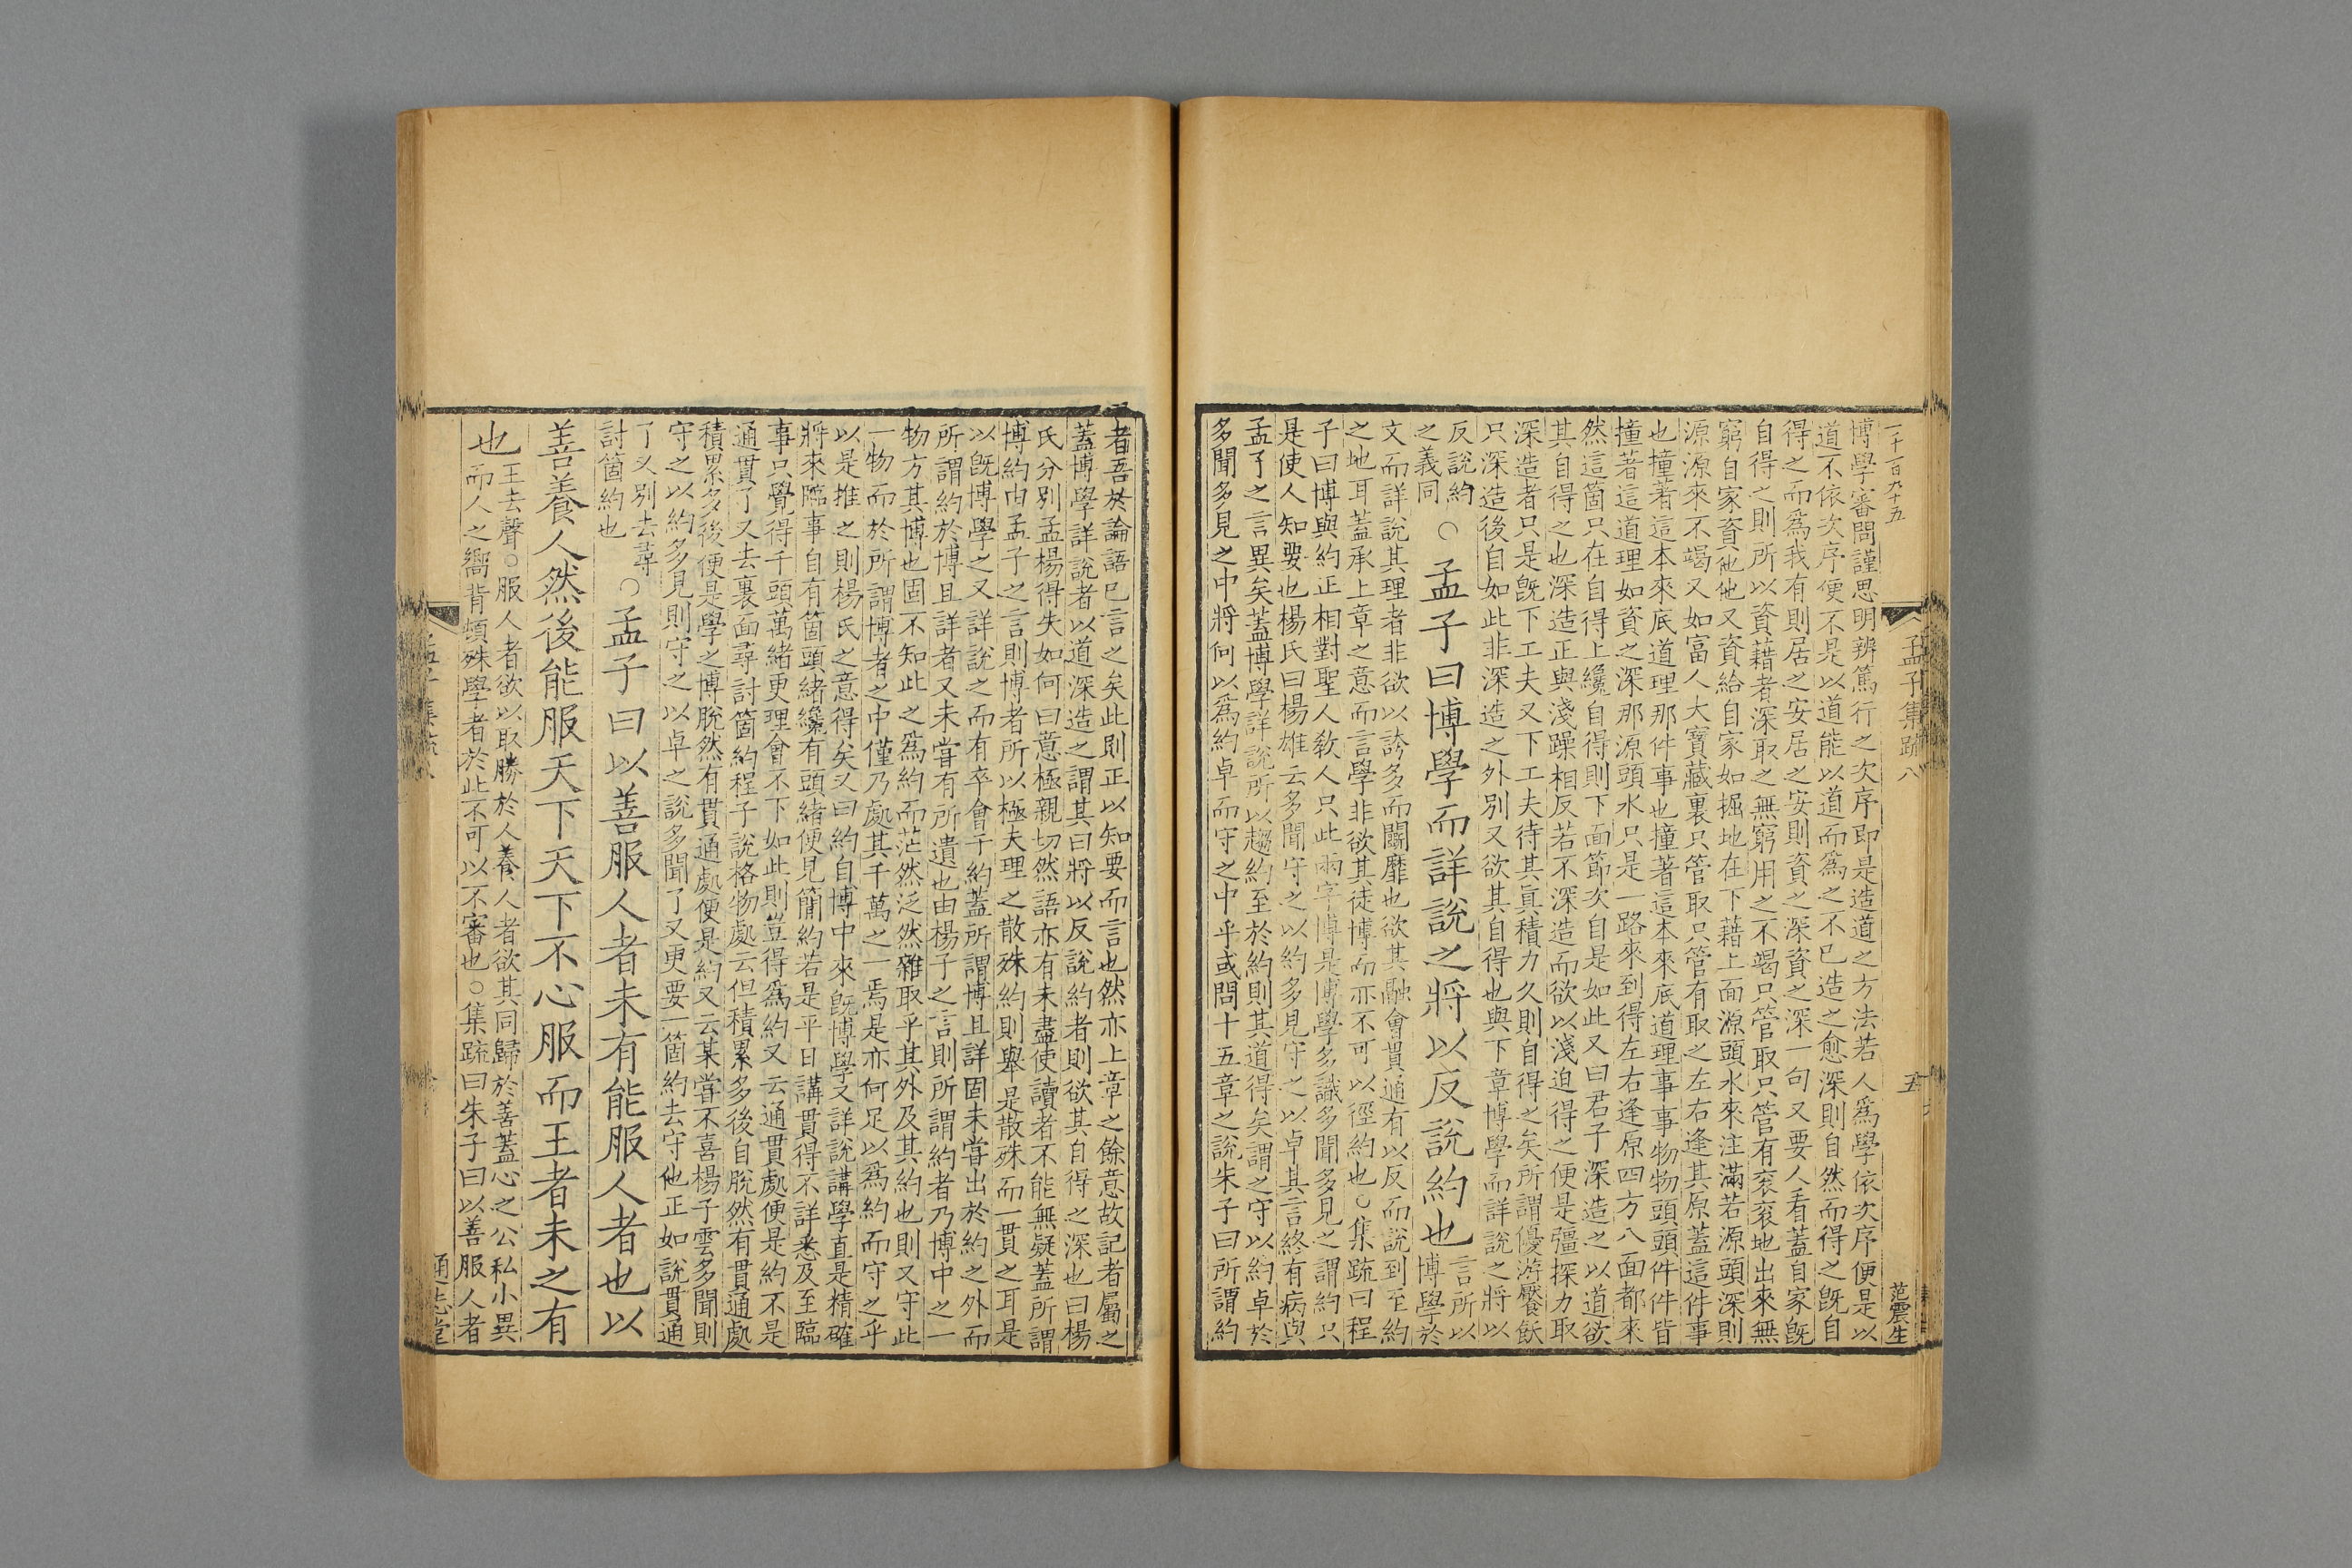 一千一百九十五
孟子集疏八
五
范震生
博學審問謹思明辨篤行之次序即是造道之方法若人爲學依次序便是以
道不依次序便不是以道能以道而爲之不已造之愈深則自然而得之旣自
得之而爲我有則居之安居之安則資之深資之深一句又要人看蓋自家旣
自得之則所以資藉者深取之無窮用之不竭只管取只管有衮衮地出來無
窮自家資他他又資給自家如掘地在下藉上面源頭水來注滿若源頭深則
源源來不竭又如富人大寶藏裏只管取只管有取之左右逢其原蓋這件事
也撞著這本來底道理那件事也撞著這本來底道理事事物物頭頭件件皆
撞著這道理如資之深那源頭水只是一路來到得左右逢原四方八面都來
然這箇只在自得上纔自得則下面節次自是如此又曰君子深造之以道欲
其自得之也深造正與淺躁相反若不深造而欲以淺迫得之便是彊探力取
深造者只是旣下工夫又下工夫待其眞積力久則自得之矣所謂優游饜飫
只深造後自如此非深造之外別又欲其自得也與下章博學而詳說之將以
反說約
之義同
○孟子曰博學而詳說之將以反說約也
言所以
博學於
文而詳說其理者非欲以誇多而鬬靡也欲其融會貫通有以反而說到至約
之地耳蓋承上章之意而言學非欲其徒博而亦不可以徑約也○集疏曰程
子曰博與約正相對聖人敎人只此兩字博是博學多識多聞多見之謂約只
是使人知要也楊氏曰楊雄云多聞守之以約多見守之以卓其言終有病與
孟子之言異矣蓋博學詳說所以趨約至於約則其道得矣謂之守以約卓於
多聞多見之中將何以爲約卓而守之中乎或問十五章之說朱子曰所謂約
者吾於論語已言之矣此則正以知要而言也然亦上章之餘意故記者屬之
蓋博學詳說者以道深造之謂其曰將以反說約者則欲其自得之深也曰楊
氏分別孟楊得失如何曰意極親切然語亦有未盡使讀者不能無疑蓋所謂
博約由孟子之言則博者所以極夫理之散殊約則舉是散殊而一貫之耳是
以旣博學之又詳說之而有卒會于約蓋所謂博且詳固未嘗出於約之外而
所謂約於博且詳者又未嘗有所遺也由楊子之言則所謂約者乃博中之一
物方其博也固不知此之爲約而茫然泛然雜取乎其外及其約也則又守此
一物而於所謂博者之中僅乃處其千萬之一焉是亦何足以爲約而守之乎
以是推之則楊氏之意得矣又曰約自博中來旣博學又詳說講學直是精確
將來臨事自有箇頭緒纔有頭緒便見簡約若是平日講貫得不詳悉及至臨
事只覺得千頭萬緒更理會不下如此則豈得爲約又云通貫處便是約不是
通貫了又去裏面尋討箇約程子說格物處云但積累多後自脫然有貫通處
積累多後便是學之博脫然有貫通處便是約又云某嘗不喜楊子雲多聞則
守之以約多見則守之以卓之說多聞了又更要一箇約去守他正如說貫通
了又別去尋
討箇約也
○孟子曰以善服人者未有能服人者也以
善養人然後能服天下天下不心服而王者未之有
也
王去聲○服人者欲以取勝於人養人者欲其同歸於善蓋心之公私小異
而人之嚮背頓殊學者於此不可以不審也○集疏曰朱子曰以善服人者
通志堂